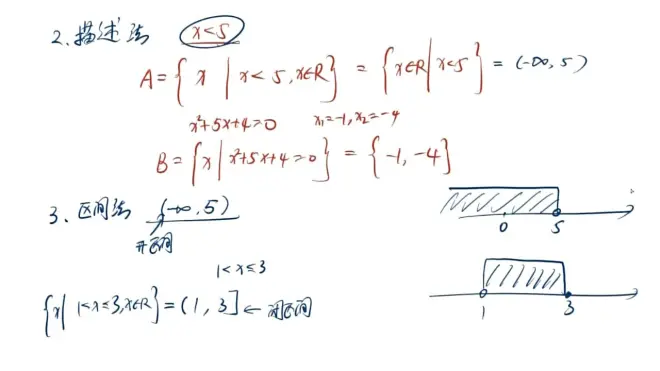 2、描述法 x<5
A={x | x<5, x∈R} = {x∈R | x<5} = (-∞, 5)
x²+5x+4=0 x₁=-1, x₂=-4
B={x | x²+5x+4=0} = {-1, -4}
3、区间法 (-∞, 5)
开区间
0 5
1<x≤3
{x | 1<x≤3, x∈R} = (1, 3] ←
1 3